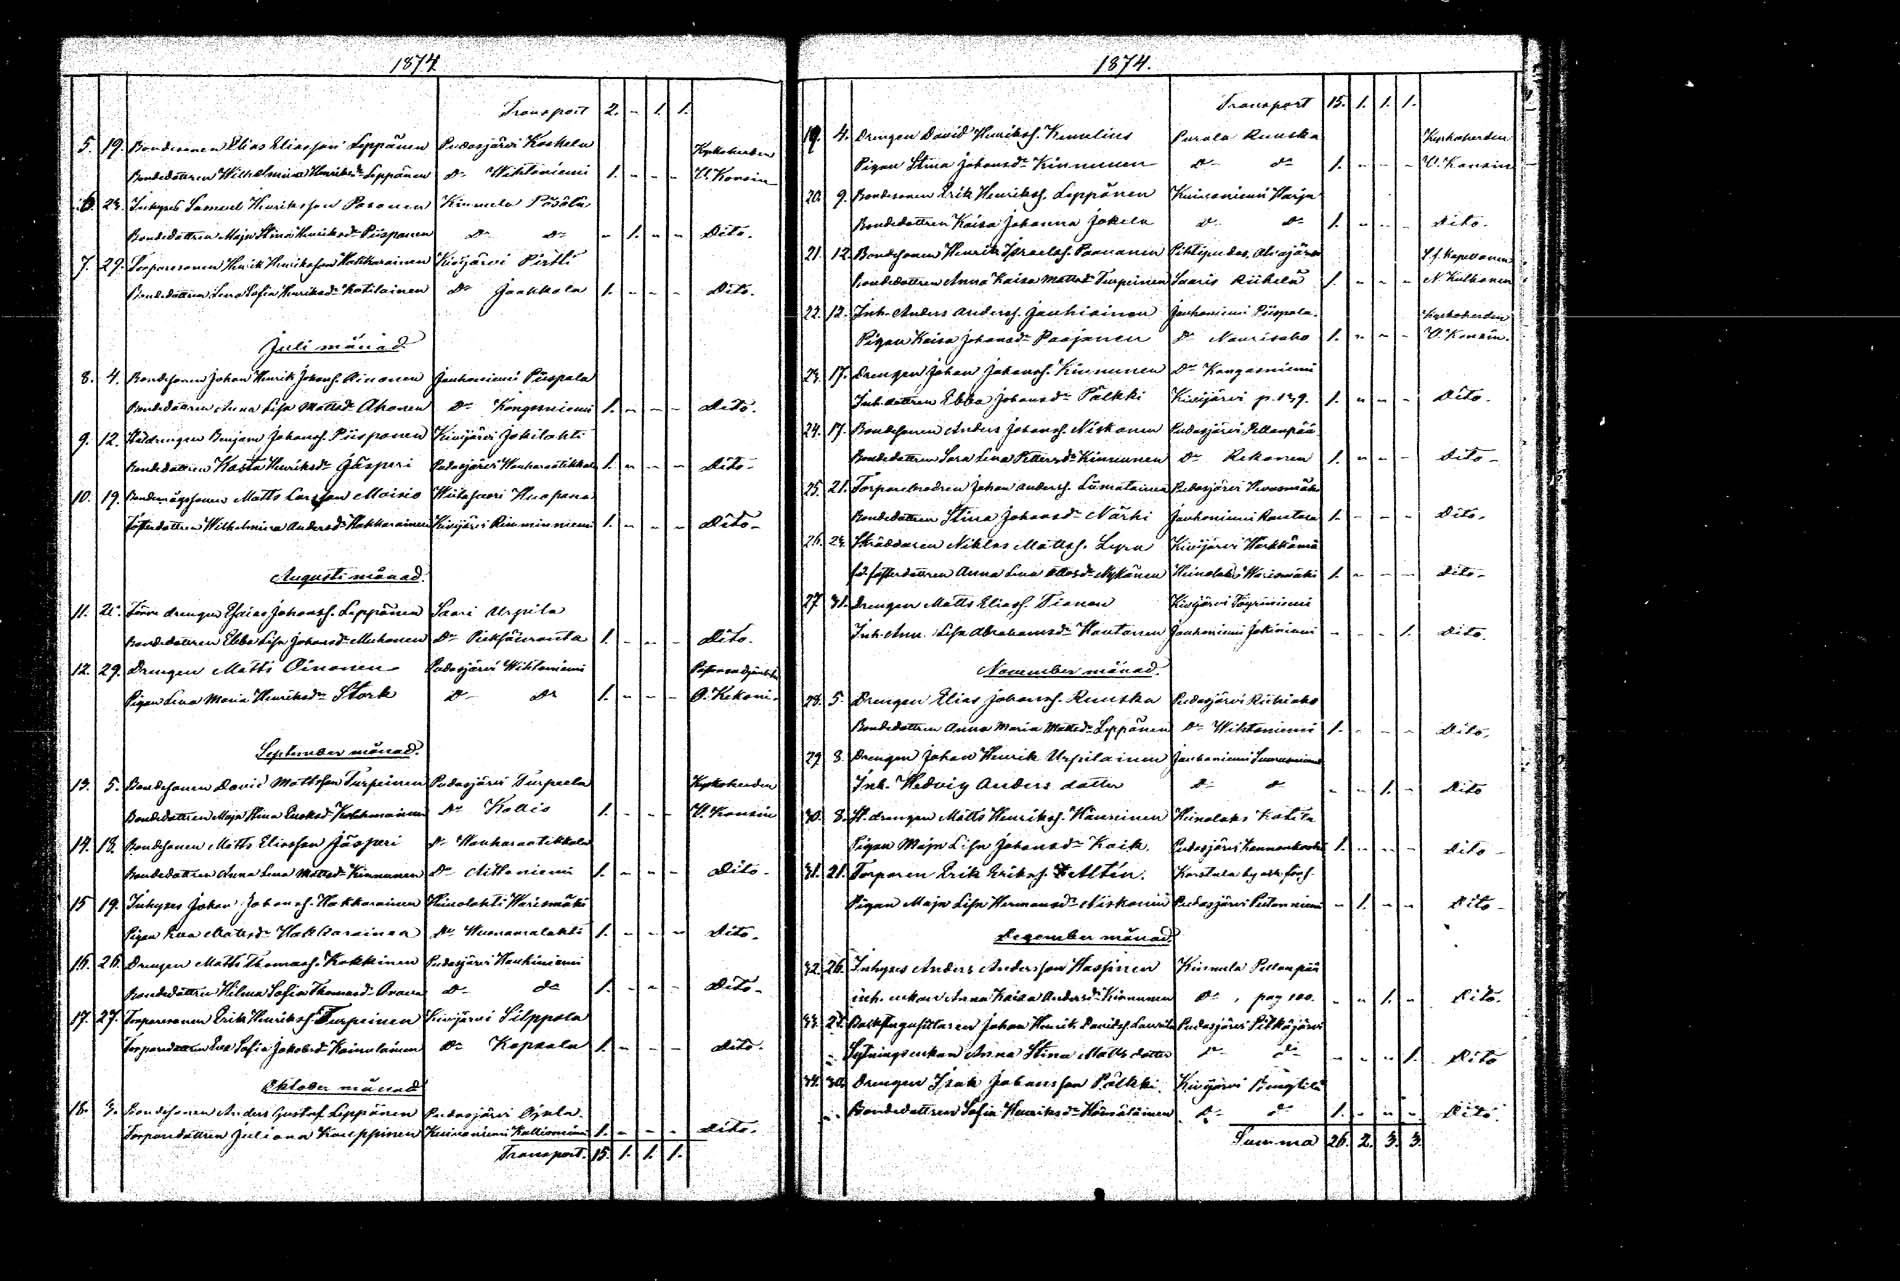 1874
Transport 2. - 1. 1.
5. 19. Bondesonen Elias Eliasson Leppänen Pudasjärvi Koskela Kyrkoherden
Bondedottren Wilhelmina Henriksdr Leppänen Dr Wihtaniemi 1. - - - U. Konsin
6. 23. Inhyses Samuel Henriksson Posonen Kinnula Pösölä
Bondedottren Maja Stina Henriksdr Piisponen Dr Dr - 1. - - Dito.
7. 29. Torparesonen Henrik Henriksson Hakkarainen Kivijärvi Pirtti
Bondedottren Lena Sofia Henriksdr Kotilainen Dr Jaakkola 1. - - - Dito.
Juli månad
8. 4. Bondesonen Johan Henrik Johans. Ainonen Jauhoniemi Piispala
Bondedottren Anna Lisa Mattsdr Ahonen Dr Kangasniemi 1. - - - Dito.
9. 12. Benjam Johans. Piisponen Kivijärvi Jokilahti
Bondedottren Kaisa Henriksdr Jäsperi Pudasjärvi 1. - - - Dito.
10. 19. Matts Larsson Moisio Huopana
Wilhelmina Andersdr Hakkarainen Kivijärvi 1. - - - Dito.
Augusti månad.
11. drengen Esaias Johanss. Leppänen Saari Urpila
Bondedottren Ebba Lisa Johansdr Muhonen Dr 1. - - - Dito.
12. 29. Drengen Matti Oinonen Pudasjärvi Wihtaniemi
Pigan Lena Maria Henriksdr Stork Dr Dr 1. - - - A. Kekoni
September månad.
13. 5. Bondesonen David Mattsson Turpeinen Pudasjärvi Turpeela Kyrkoherden
Bondedottren Maja Stina Dr Kallio 1. - - - U. Konsin
14. 13. Bondesonen Matts Eliasson Jäsperi Dr
Bondedottren Anna Lena Mattsdr Kinnunen Dr Aittoniemi 1. - - - Dito.
15 19. Inhyses Johan Johans. Hakkarainen Heinolahti Warismäki
Pigan Eva Mattsdr Hakkarainen Dr 1. - - - Dito.
16. 26. Drengen Matts Thomass. Kokkinen Pudasjärvi Hauhiniemi
Bondedottren Hilma Sofia Thomasdr Dr Dr 1. - - - Dito.
17. 27. Torparesonen Erik Henrikss. Turpeinen Kivijärvi Silppola
Torparedottren Eva Sofia Jakobsdr Kainulainen Dr Kopsala 1. - - - Dito.
Oktober månad
18. 3. Bondesonen Anders Gustaf Leppänen Pudasjärvi Ojala.
Torparedottren Juliana Kauppinen 1. - - - Dito.
Transport. 15. 1. 1. 1.
1874.
Transport 15. 1. 1. 1.
19. 4. Drengen David Henrikss. Kumlius Purala Ruuska Kyrkoherden
Pigan Stina Johansdr Kinnunen Dr Dr 1. - - - U. Konsin
20. 9. Bondesonen Erik Henrikss. Leppänen Harju
Bondedottren Kaisa Johanna Jokela Dr Dr 1. - - - Dito.
21. 12. Bondesonen Henrik Israelss. Paananen Pihtipudas, Alvajärvi Kapellanen
Bondedottren Anna Kaisa Mattsdr Turpeinen Saaris Riihelä 1. - - - N. Kulhanen
22. 12. Inh. Anders Anderss. Jauhiainen Jauhoniemi Piispala. Kyrkoherden
Pigan Kaisa Johansdr Paajanen Dr Naurisaho 1. - - - U. Konsin.
23. 17. Drengen Johan Johanss. Kinnunen Dr Kangasniemi
Inh. dottren Ebba Johansdr Pälkki Kivijärvi p. 139. 1. - - - Dito.
24. 17. Bondesonen Anders Johanss. Niskanen Pudasjärvi Peltanpää
Bondedottren Sara Lena Pettersdr Kinnunen Dr Rekonen 1. - - - Dito
25. 21. Johan Anderss. Liimatainen Pudasjärvi
Bondedottren Stina Johansdr Närhi Jauhoniemi Rantala 1. - - - Dito.
26. 23. Skräddaren Niklas Mattss. Kivijärvi
fosterdottren Anna Lena Nykänen Heinolahti Warismäki 1. - - - Dito.
27. 31. Drengen Matts Eliass. Tianen Kivijärvi Töyriniemi
Inh. Ann. Lisa Abrahamsdr Hautanen Jauhoniemi Jokiniemi - - - 1. Dito.
November månad.
28. 5. Drengen Elias Johanss. Ruuska Pudasjärvi Riihiaho
Bondedottren Anna Maria Mattsdr Leppänen Dr Wihtaniemi 1. - - - Dito.
29 8. Drengen Johan Henrik Urpilainen Jauhoniemi
Inh. Hedvig Anders dotter Dr Dr - - 1. - Dito
30. 8. drengen Matts Henrikss. Hänninen Heinolahti Kotila
Pigan Maja Lisa Johansdr Kaik. Pudasjärvi Kannonkoski 1. - - - Dito
31. 21. Torparen Erik Erikss. Altin. Karstula
Pigan Maja Lisa Hermansdr Niskanen Pudasjärvi - 1. - - Dito
December månad.
32. 26. Inhyses Anders Andersson Hassinen Kinnula Peltanpää
inh. enkan Anna Kaisa Andersdr Kinnunen Dr , pag 100. - - 1. - Dito.
33. 27. Johan Henrik Davidss. Pudasjärvi Pitkäjärvi
Sytningsenkan Anna Stina Matts dotter Dr Dr - - - 1. Dito
34. Drengen Isak Johansson Pälkki. Kivijärvi
Bondedottren Sofia Henriksdr Hämäläinen Dr Dr 1. - - - Dito.
Summa 26. 2. 3. 3.